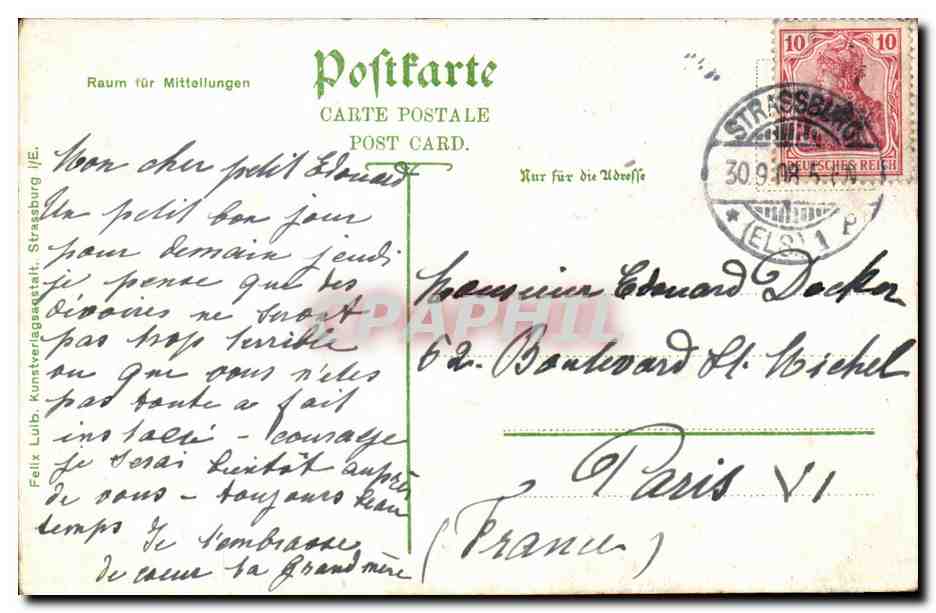 Postkarte
CARTE POSTALE
POST CARD.
Raum für Mitteilungen
Nur für die Adresse
10 10
DEUTSCHES REICH
STRASSBURG
30.9.08.5-6N
* (ELS.) 1 P
Felix Luib. Kunstverlagsagstalt, Strassburg i/E.
Mon cher petit Edouard
Un petit bon jour
pour demain jeudi
je pense que des
divoires ne seront
pas trop terrible
ou que vous n'etes
pas toute a fait
installé - courage
je serai bientôt auprès
de vous - toujours beau
temps Je t'embrasse
de coeur ta Grandmère
Monsieur Edouard Docker
62. Boulevard St. Michel
Paris VI
(France)
PAPHIL